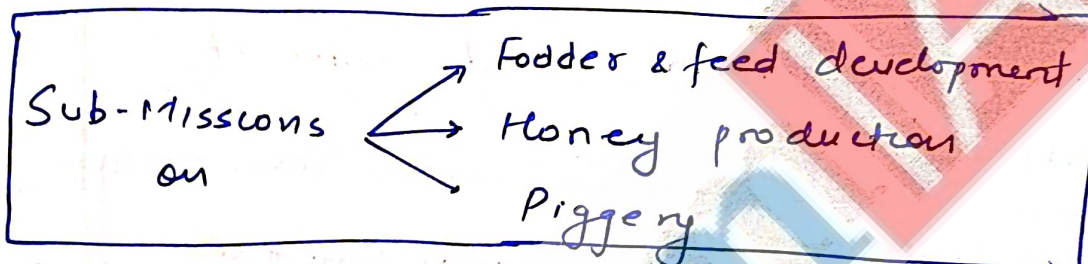 Sub-Missions
on
Fodder & feed development
Honey production
Piggery